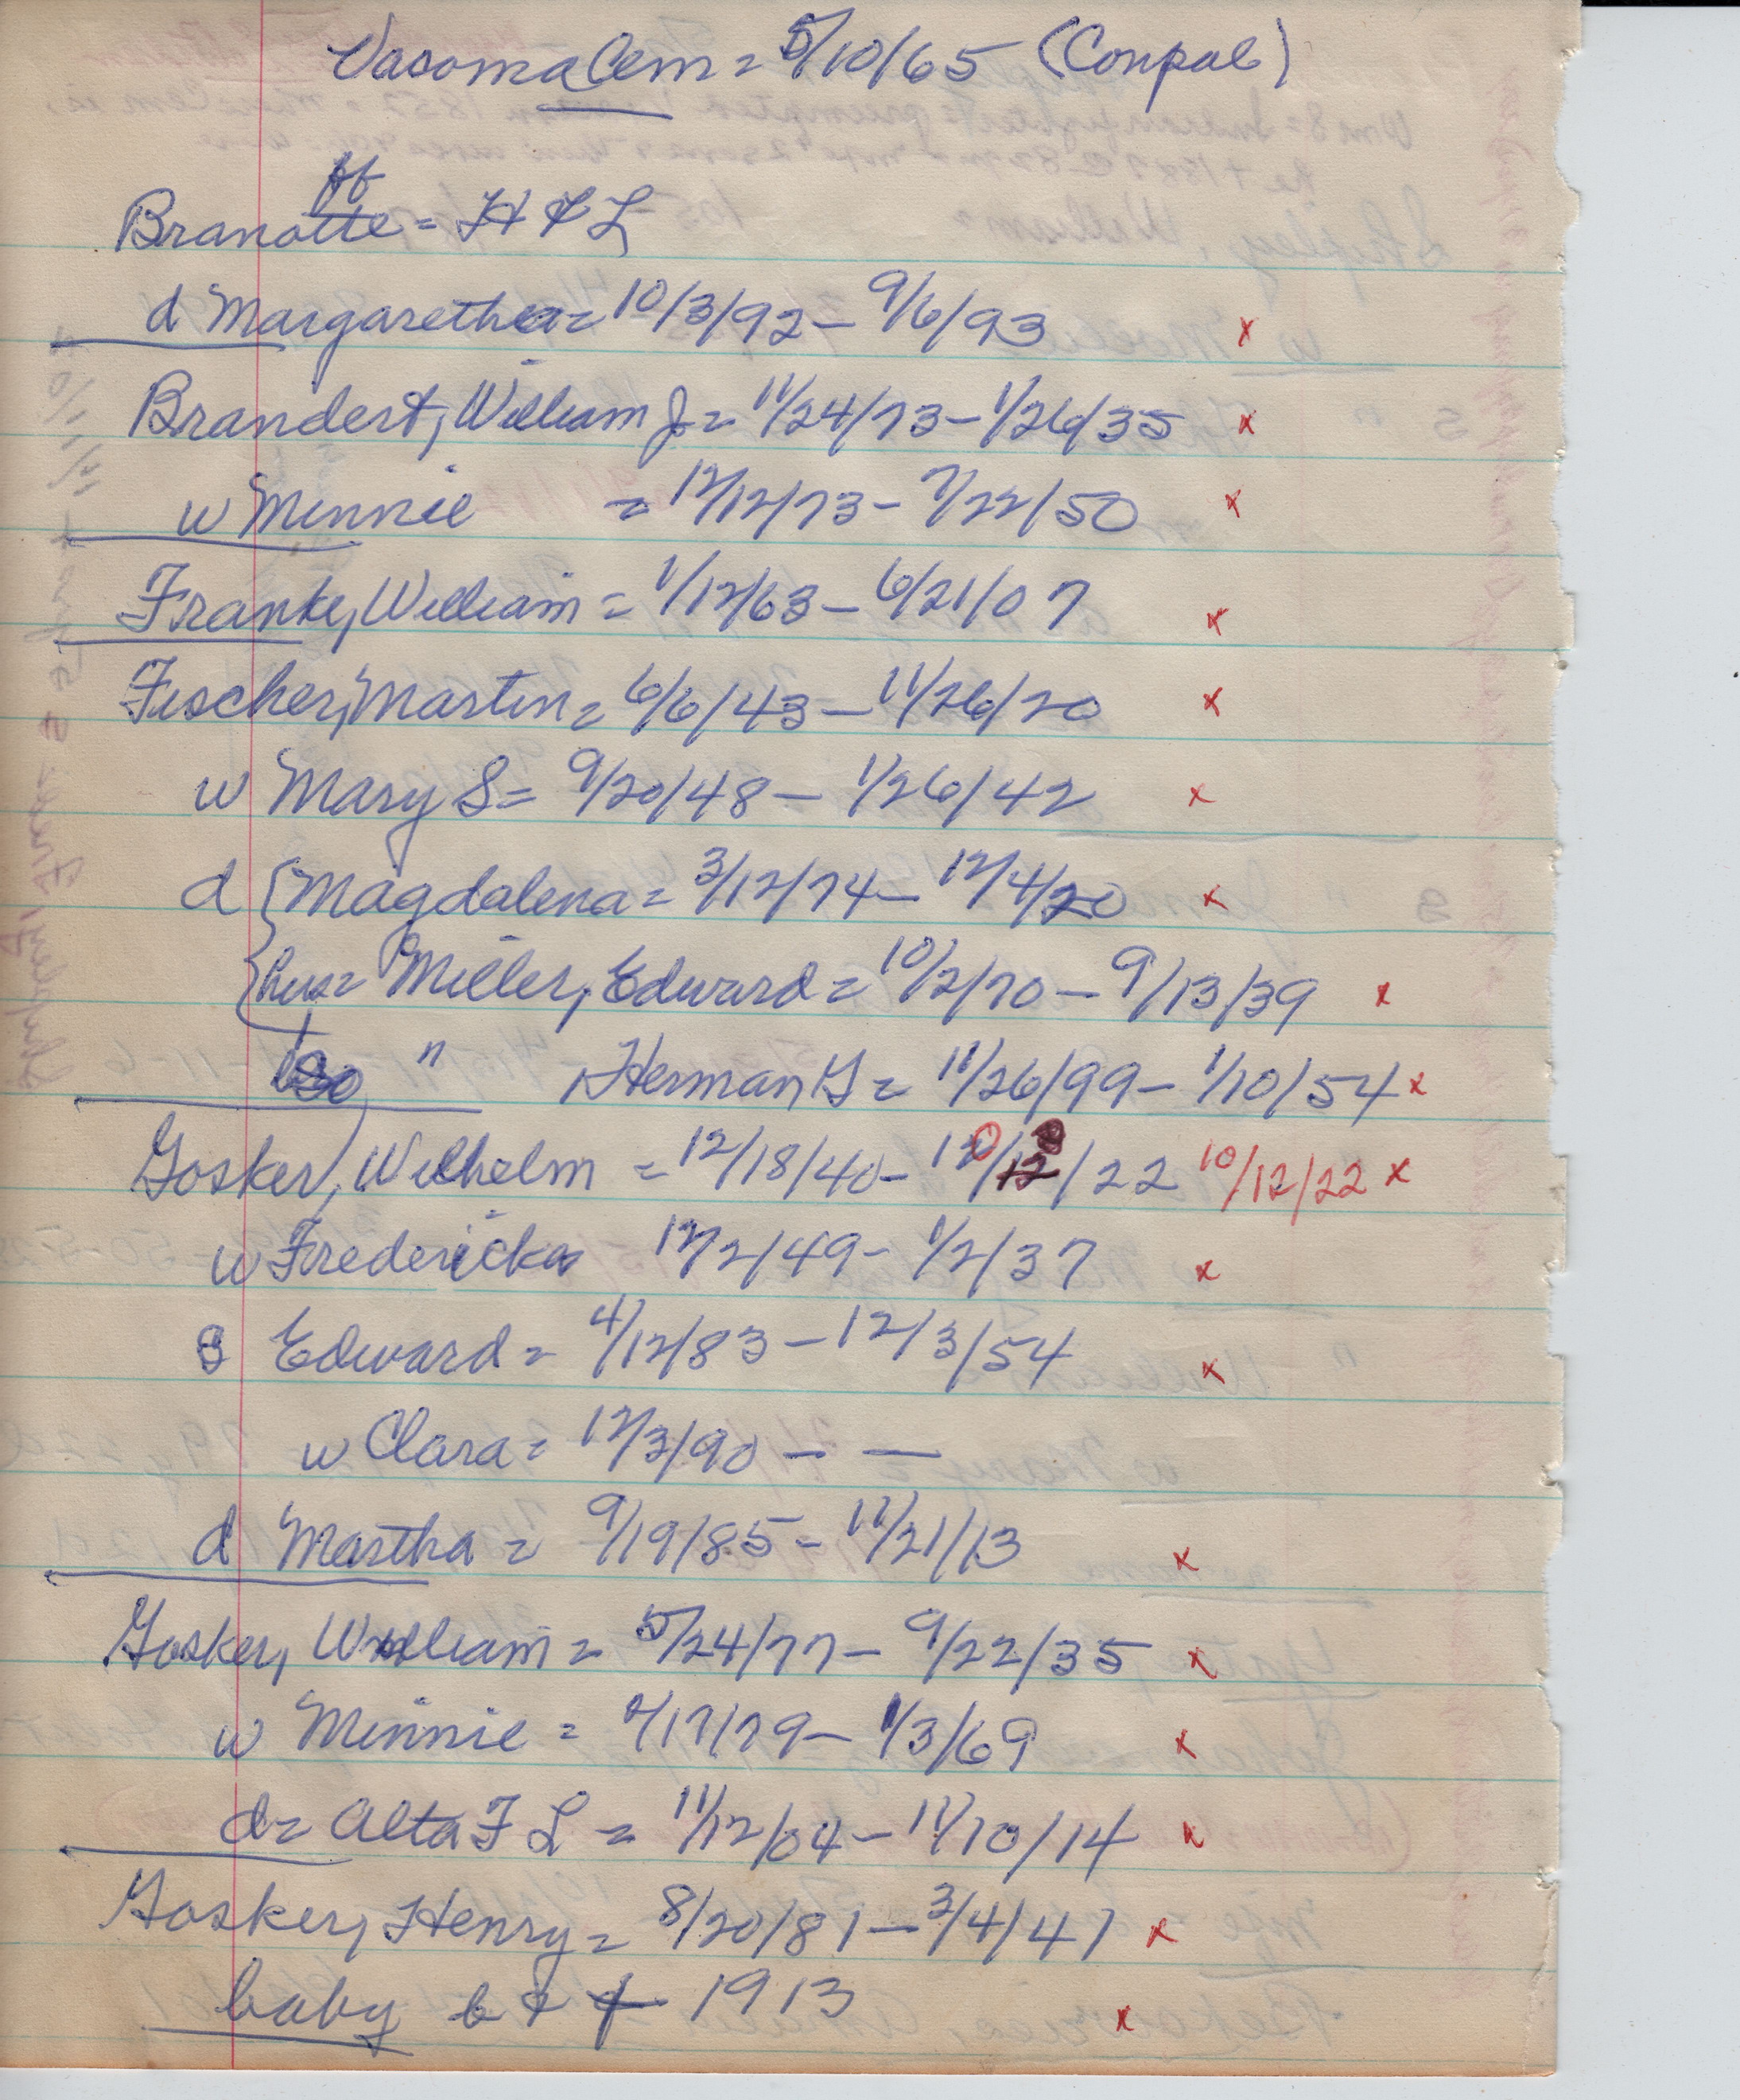 Vacoma Cem = 5/10/65 (Conpal)
ff
Branotte = H & L
d Margarethea = 10/3/92 - 9/6/93 x
Brandert, William J = 11/24/73 - 1/26/35 x
w Minnie = 12/12/73 - 7/22/50 x
Franke, William = 1/12/63 - 6/21/07 x
Fischer, Martin = 6/6/43 - 11/26/20 x
w Mary S = 9/20/48 - 1/26/42 x
d { Magdalena = 3/12/74 - 12/4/20 x
{ hus = Miller, Edward = 10/2/70 - 9/13/39 x
so " , Herman G = 11/26/99 - 1/10/54 x
Gosker, Wilhelm = 12/18/40 - 10/12/22 10/12/22 x
w Fredericka 12/2/49 - 1/2/37 x
s Edward = 4/12/83 - 12/3/54 x
w Clara = 12/3/90 - —
d Martha = 9/19/85 - 11/21/13 x
Gosker, William = 5/24/77 - 9/22/35 x
w Minnie = /17/79 - 1/3/69 x
d = Alta F L = 11/12/04 - 11/10/14 x
Gosker, Henry = 8/20/81 - 3/4/47 x
baby b & + 1913 x